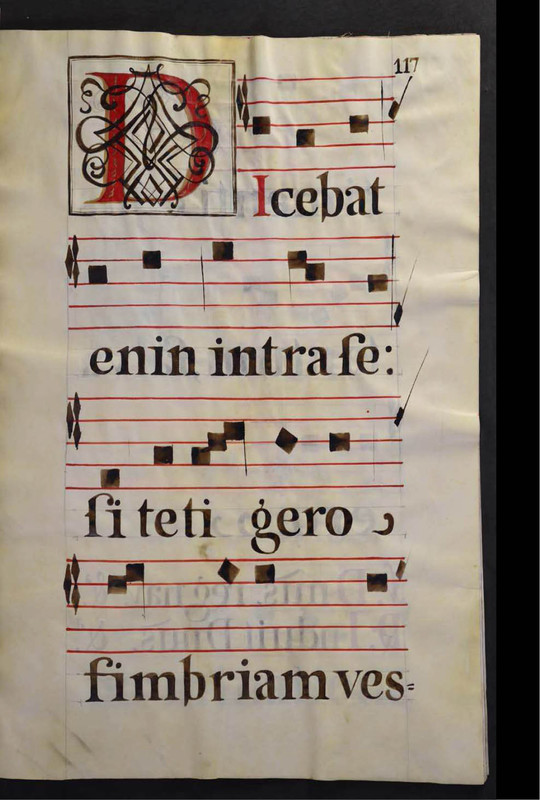 117
DIcebat
enin intra ſe:
ſi teti gero
fimbriam ves=